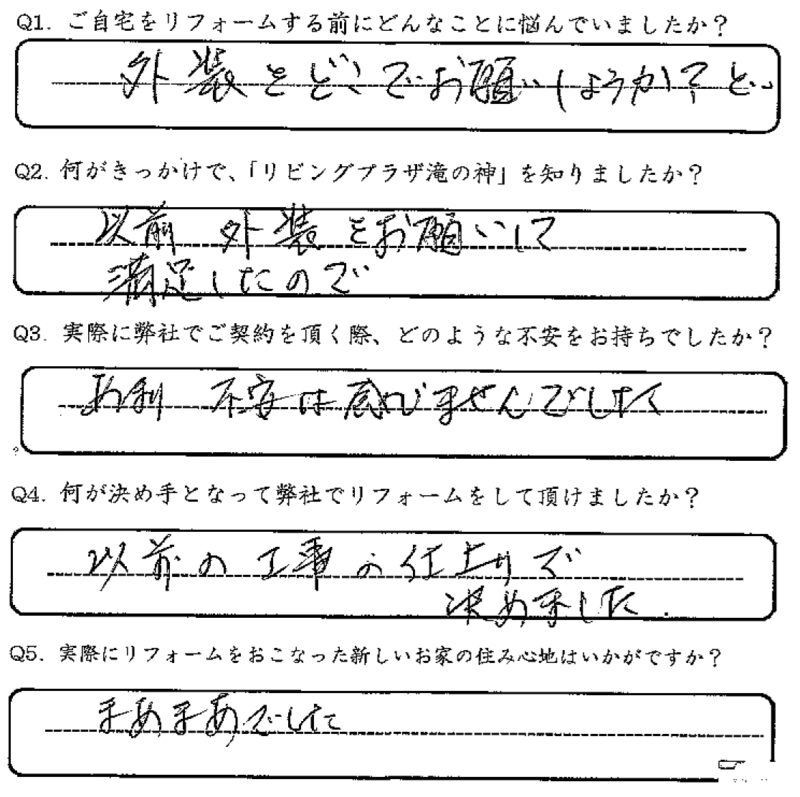 Q1. ご自宅をリフォームする前にどんなことに悩んでいましたか？
外装をどこでお願いしようか？と..
Q2. 何がきっかけで、「リビングプラザ滝の神」を知りましたか？
以前 外装をお願いして
満足したので
Q3. 実際に弊社でご契約を頂く際、どのような不安をお持ちでしたか？
不安は感じませんでした
Q4. 何が決め手となって弊社でリフォームをして頂けましたか？
以前の工事の仕上りで
決めました.
Q5. 実際にリフォームをおこなった新しいお家の住み心地はいかがですか？
まあまあでした